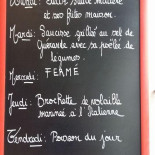 et ses frites maison.
Mardi: Saucisse grillée au sel de
Guérande avec sa poêlée de
légumes.
Mercredi: FERMÉ
Jeudi: Brochette de volaille
marinée à l'Italienne
Vendredi: Poisson du jour